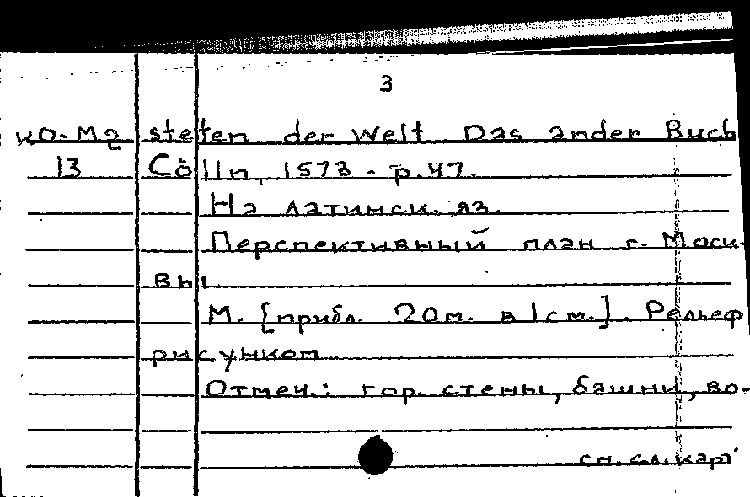 3
КО-М2 steten der Welt Das ander Buch
13 Cölln, 1573. - р.47.
На латинск. яз.
Перспективный план г. Моск-
вы
М. [прибл. 20м. в 1см.]. Рельеф
рисунком
Отмеч.: гор. стены, башни, во-
см. сл. карт